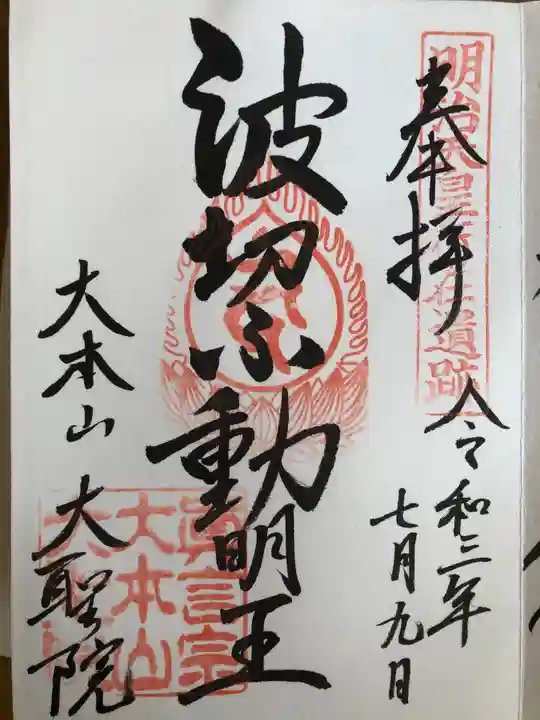 奉拝
明治天皇行在遺跡
令和三年
七月九日
波切不動明王
大本山 大聖院
真言宗
大本山